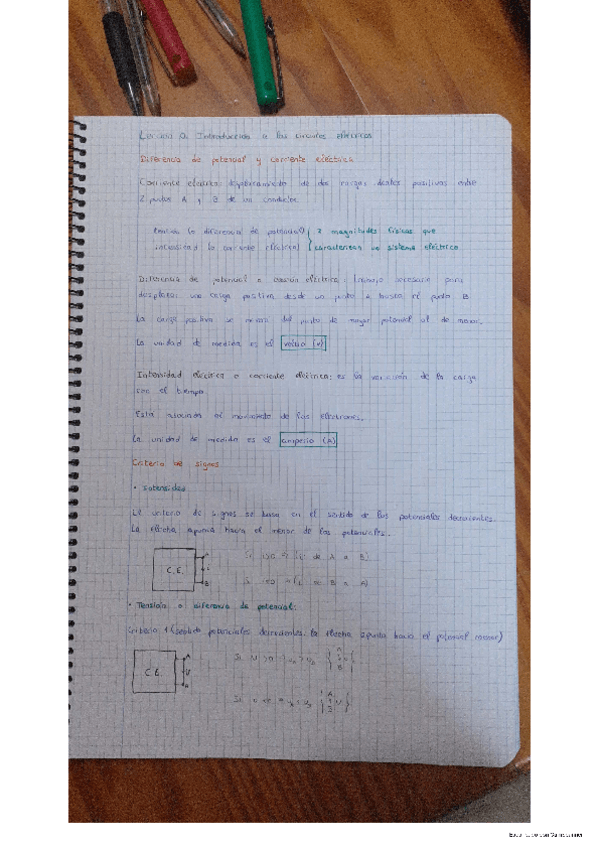 Lección 0. Introducción a los circuitos eléctricos
Diferencia de potencial y corriente eléctrica
Corriente eléctrica: desplazamiento de las cargas positivas entre
2 puntos A y B de los conductos
tensión (o diferencia de potencial) 2 magnitudes físicas que
intensidad (o corriente eléctrica) caracterizan un sistema eléctrico
Diferencia de potencial o tensión eléctrica: trabajo necesario para
desplazar una carga positiva desde un punto A hasta el punto B
La carga positiva se mueve del punto de mayor potencial al de menor.
La unidad de medida es el voltio (V)
Intensidad eléctrica o corriente eléctrica: es la variación de la carga
con el tiempo.
Está asociada al movimiento de los electrones.
La unidad de medida es el amperio (A)
Criterio de signos
• Intensidad
El criterio de signos se basa en el sentido de los potenciales decrecientes.
La flecha apunta hacia el menor de los potenciales.
C.E. A i B
Si i>0 de A a B)
Si i<0 de B a A)
• Tensión o diferencia de potencial:
Criterio 1 (sentido potenciales decrecientes. la flecha apunta hacia el potencial menor)
C.E. A
Si
Si